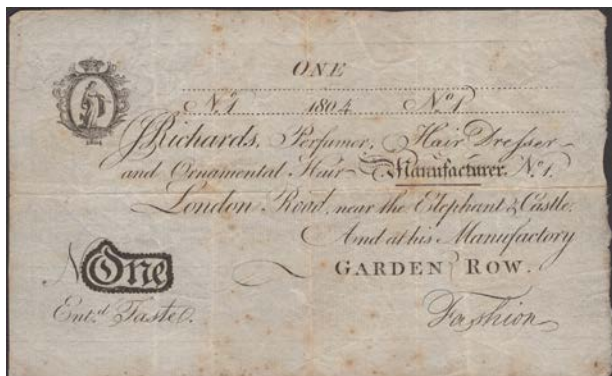 ONE
No. 1 1804 No. 1
1804
J Richards, Perfumer, Hair Dresser
and Ornamental Hair Manufacturer. No. 1.
London Road, near the Elephant & Castle.
And at his Manufactory
GARDEN ROW.
N One
Ent.d Taste.
Fashion